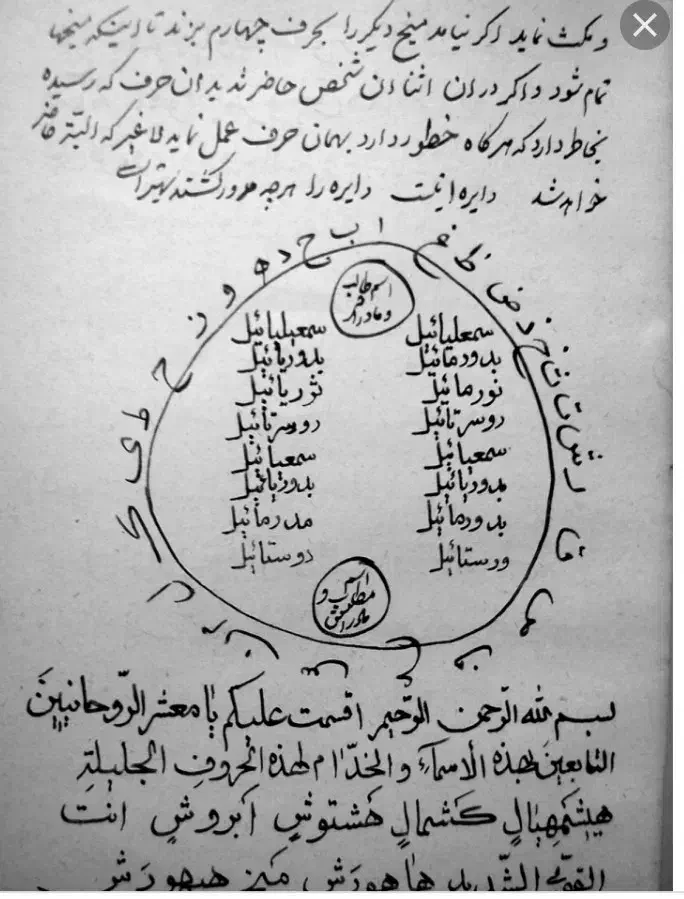 و مکث نماید اگر نیامد میخ دیگر را بحرف چهارم بزند تا اینکه میخها
تمام شود و اگر در ان اثنا ان شخص حاضر شد بدان حرف که رسیده
بخاطر دارد که هرگاه خطور دارد بهمان حرف عمل نماید لاغیر که البته حاضر
خواهد شد دایره اینست دایره را هرچه مدور کشند بهتر است
ا ب ج د ه و ز ح ط ی ک ل م ن س ع ف ص ق ر ش ت ث خ ذ ض ظ غ
اسم طالب
و مادر او
سمعلیائیل سمعیلیائیل
بدودمائیل بدوریائیل
نورمائیل نوریائیل
دوسرتائیل دوسرتائیل
سمعیائیل سمعیائیل
بدودیائیل بدودیائیل
بدودمائیل مدرمائیل
ورستائیل دوستائیل
اسم
مطلوب و
مادراش
بسم الله الرّحمن الرّحیم اقسمت علیکم یا معشر الرّوحانیین
التابعین لهذه الاسماء و الخدّام لهذه الحروف الجلیلة
هیشمهیال کشمال هشتوش ابروش انت
القوی الشّدید هاهورش هیهورش